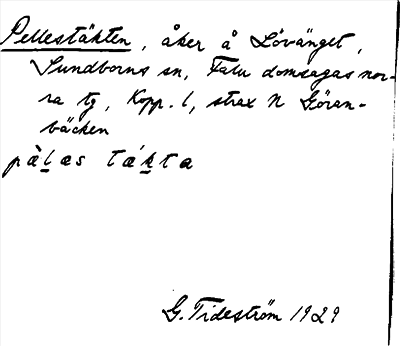 Pellestäkten, åker å Lövänget,
Sundborns sn, Falu domsagas nor-
ra tg, Kopp. l, strax N Göran-
bäcken
pàḻas tákta
G. Tideström 1929